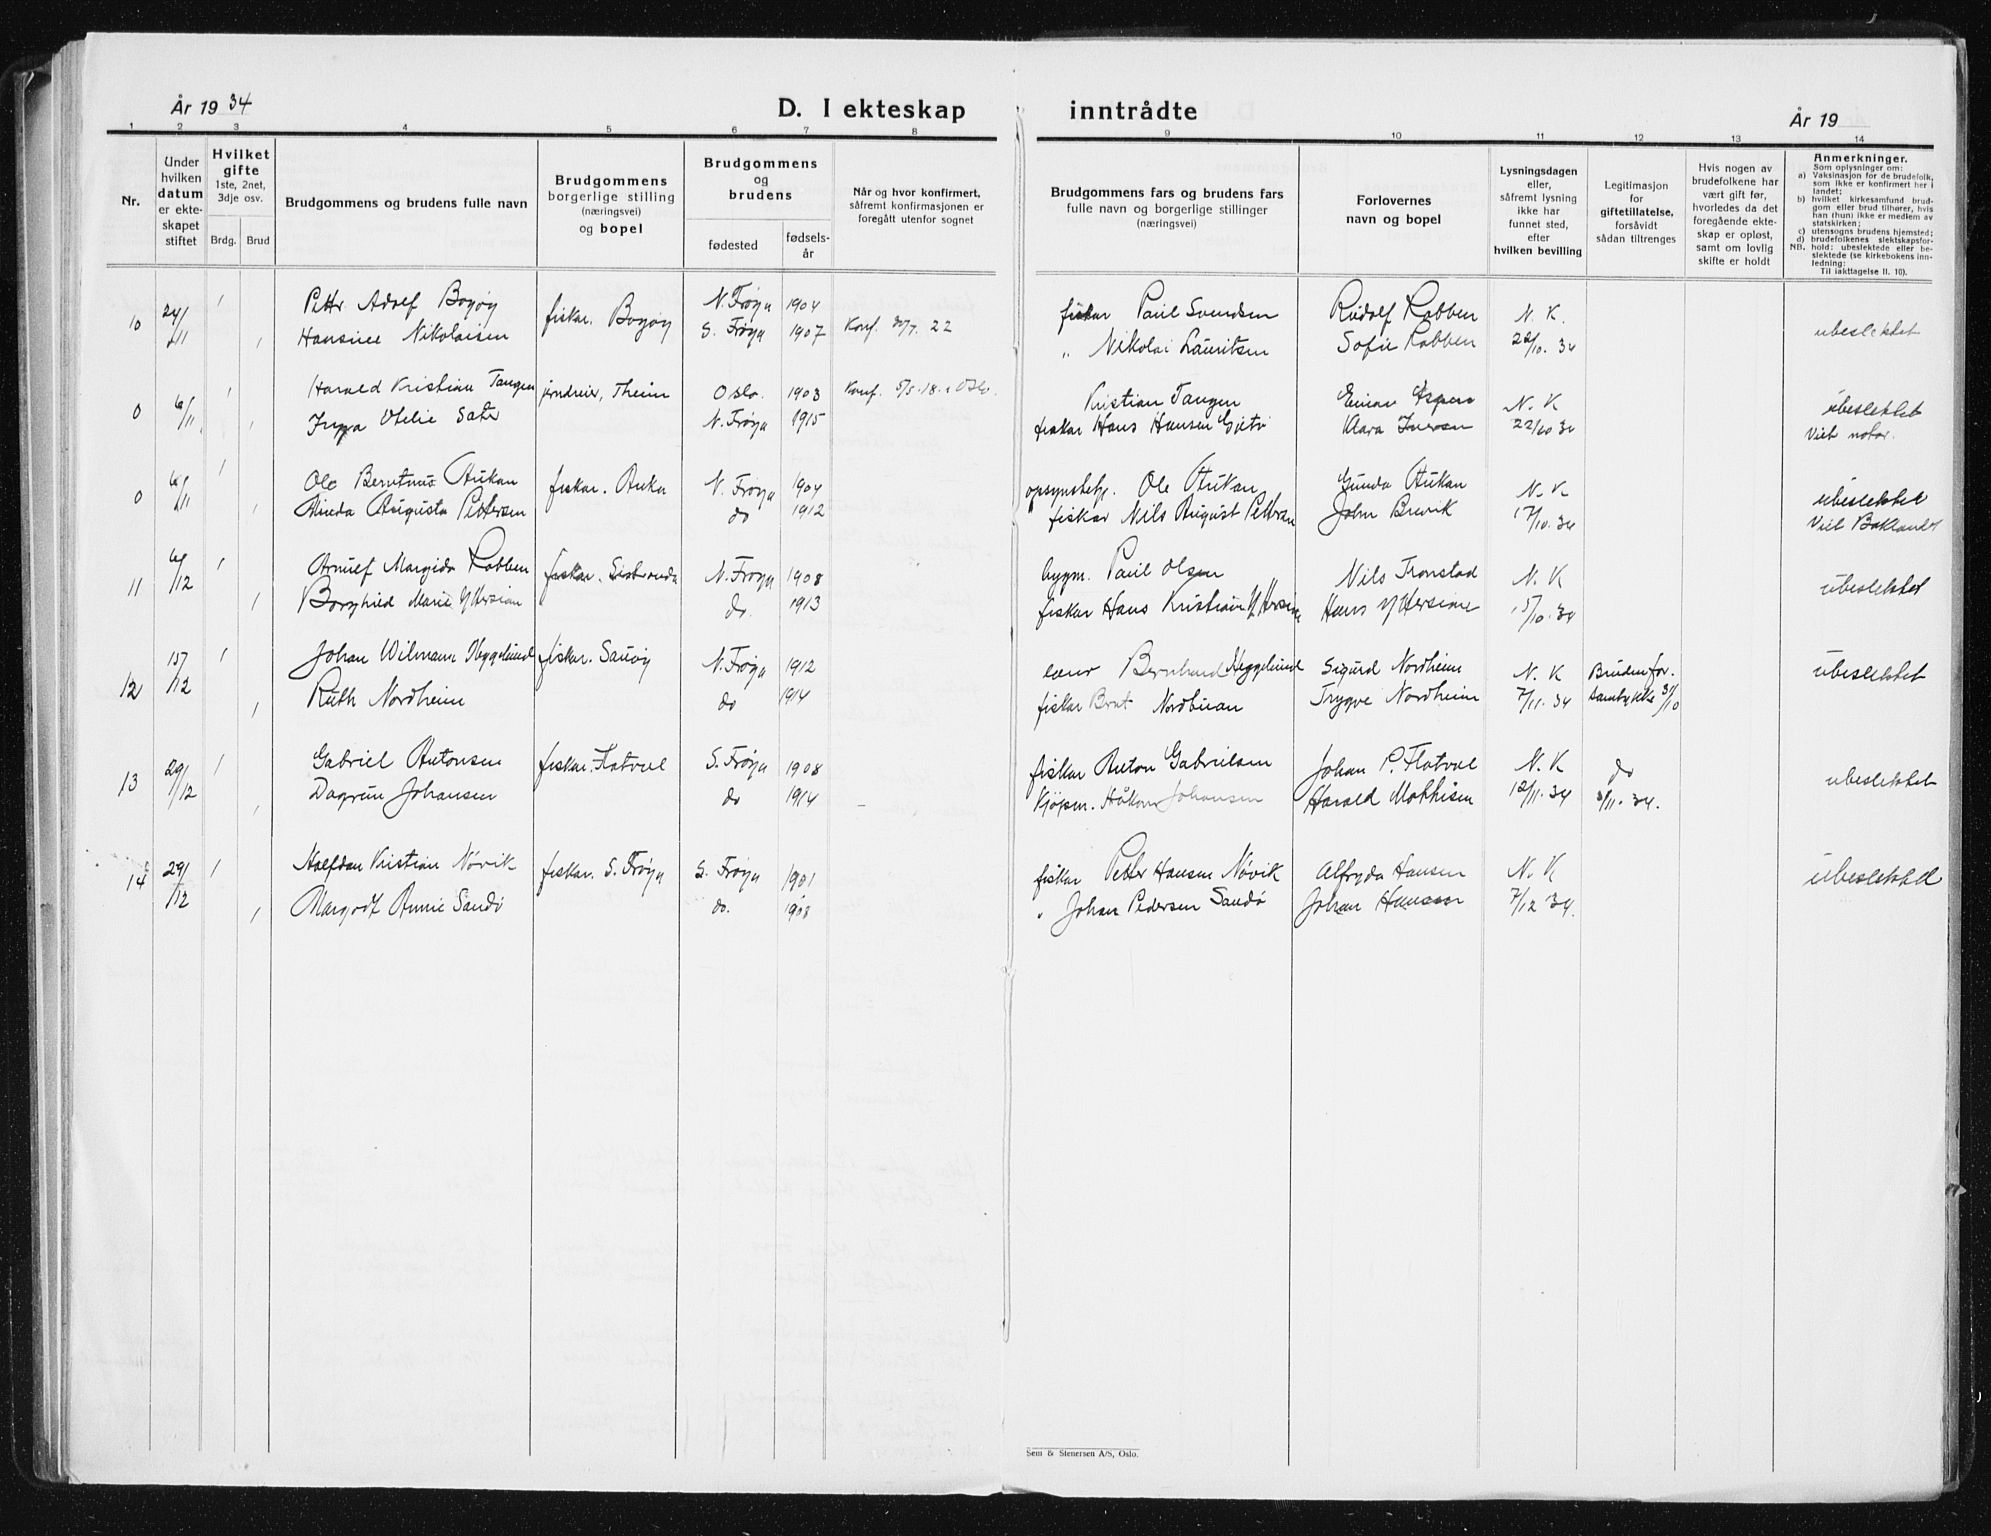 År 19 34
D. I ekteskap inntrådte
År 19
1 2 3 4 5 6 7 8 9 10 11 12 13 14
Nr.
Under hvilken datum er ekteskapet stiftet
Hvilket gifte 1ste, 2net, 3dje osv.
Brdg. Brud
Brudgommens og brudens fulle navn
Brudgommens borgerlige stilling (næringsvei) og bopel
Brudgommens og brudens
fødested fødselsår
Når og hvor konfirmert, såfremt konfirmasjonen er foregått utenfor sognet
Brudgommens fars og brudens fars fulle navn og borgerlige stillinger (næringsvei)
Forlovernes navn og bopel
Lysningsdagen eller, såfremt lysning ikke har funnet sted, efter hvilken bevilling
Legitimasjon for giftetillatelse, forsåvidt sådan tiltrenges
Hvis nogen av brudefolkene har vært gift før, hvorledes da det foregående ekteskap er opløst, samt om lovlig skifte er holdt
Anmerkninger.
Som oplysninger om:
a) Vaksinasjon for de brudefolk, som ikke er konfirmert her i landet;
b) hvilket kirkesamfund brudgom eller brud tilhører, hvis han (hun) ikke er medlem av statskirken;
c) utensogns brudens hjemsted;
d) brudefolkenes slektskapsforhold: ubeslektede eller beslektede (se kirkebokens innledning:
NB.
Til iakttagelse II. 10).
10 24/11 1 Petter Adolf Bogøy fiskar. Bogøy N. Frøya 1904 fiskar Paul Svendsen Rudolf Rabben N. K. ubeslektet
1 Hansine Nikolaisen S. Frøya 1907 Konf. 30/7. 22 " Nikolai Lauritsen Sofie Rabben 22/10. 34
0 6/11 1 Harald Kristian Tangen Oslo. 1903 Konf. 5/5. 18. i Oslo. Kristian Tangen Einar N. K ubeslektet
1 Inga Otelie N. Frøya 1915 fiskar Hans Hansen Klara Iversen 22/10 34 Viet notar.
0 6/11 1 Ole Berntinus Aukan fiskar. N. Frøya 1904 Ole Aukan Gunda Aukan N. K ubeslektet
1 Minda Augusta Pettersen do 1912 fiskar Nils August Pettersen John Brevik 17/10. 34 Viet
11 6/12 1 Arnulf Margido Rabben fiskar. Sistranda N. Frøya 1908 bygm. Paul Olsen Nils Tronstad N. K ubeslektet
1 Borghild Marie Yttersian do. 1913 fiskar Hans Kristian Yttersian Hans Yttersian 15/10. 34
12 15/12 1 Johan Wilmann Heggelund fiskar. Sauøy N. Frøya 1912 lærer Bernhard Heggelund Sigurd Nordheim N. K Brudens for. ubeslektet
1 Ruth Nordheim do 1914 fiskar Nordbuan Trygve Nordheim 7/11. 34 samtykke 31/10
13 29/12 1 Gabriel Antonsen fiskar. Flatval S. Frøya 1908 fiskar Anton Gabrielsen Johan P. Flatval N. K do ubeslektet
1 Dagrun Johansen do 1914 Kjøpm. Håkon Johansen Harald Mathisen 12/11. 34 3/11. 34.
14 29/12 1 Halfdan Kristian Nøvik fiskar. S. Frøya S. Frøya 1901 fiskar Petter Hansen Nøvik Alfryda Hansen N. K ubeslektet
1 Margodt Annie Sandø do. 1908 " Johan Pedersen Sandø Johan Hansen 7/12 34.
Sem & Stenersen A/S, Oslo.